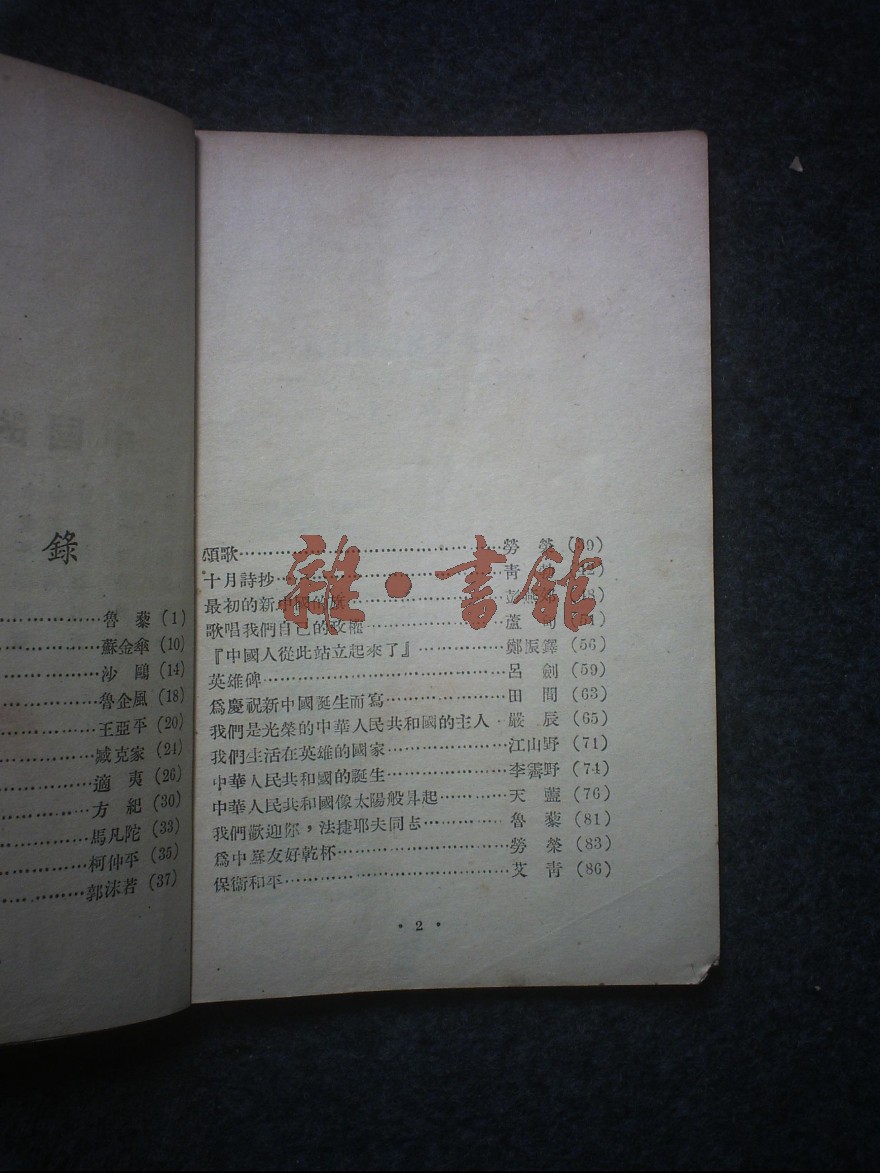 錄
魯 藜 (1)
蘇金傘 (10)
沙 鷗 (14)
魯企風 (18)
王亞平 (20)
臧克家 (24)
適 夷 (26)
方 紀 (30)
馬凡陀 (33)
柯仲平 (35)
郭沫若 (37)
頌歌 勞 榮
十月詩抄 青
最初的新中國的旗
歌唱我們自己的政權 蘆 甸
『中國人從此站立起來了』 鄭振鐸 (56)
英雄碑 呂 劍 (59)
爲慶祝新中國誕生而寫 田 間 (63)
我們是光榮的中華人民共和國的主人 · 嚴 辰 (65)
我們生活在英雄的國家 江山野 (71)
中華人民共和國的誕生 李霽野 (74)
中華人民共和國像太陽般昇起 天 藍 (76)
我們歡迎你，法捷耶夫同志 魯 藜 (81)
爲中蘇友好乾杯 勞 榮 (83)
保衞和平 艾 青 (86)
· 2 ·
雜·書館